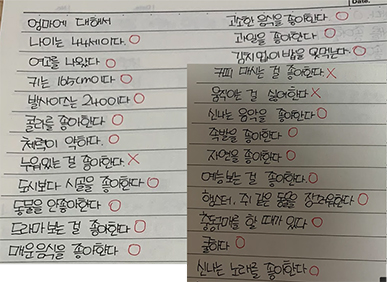 Date.
엄마에 대해서
나이는 44세이다. O
여고를 나왔다 O
키는 165cm이다 O
발사이즈는 240이다 O
콜라를 좋아한다 O
체력이 약하다. O
누워있는 걸 좋아한다 X
도시보다 시골을 좋아한다 O
동물을 안좋아한다 O
드라마 보는 걸 좋아한다 O
매운음식을 좋아한다 O
고소한 음식을 좋아한다 O
과일을 좋아한다. O
김치 없이 밥을 못먹는다 O
커피 마시는 걸 좋아한다 X
움직이는 걸 싫어한다 X
신나는 음악을 좋아한다 O
족발을 좋아한다 O
자연을 좋아한다 O
예능 보는 걸 좋아한다. O
햄스터, 쥐 같은 동물을 징그러워한다 O
충동구매를 할 때가 있다 O
쿨하다 O
신나는 노래를 좋아한다 O